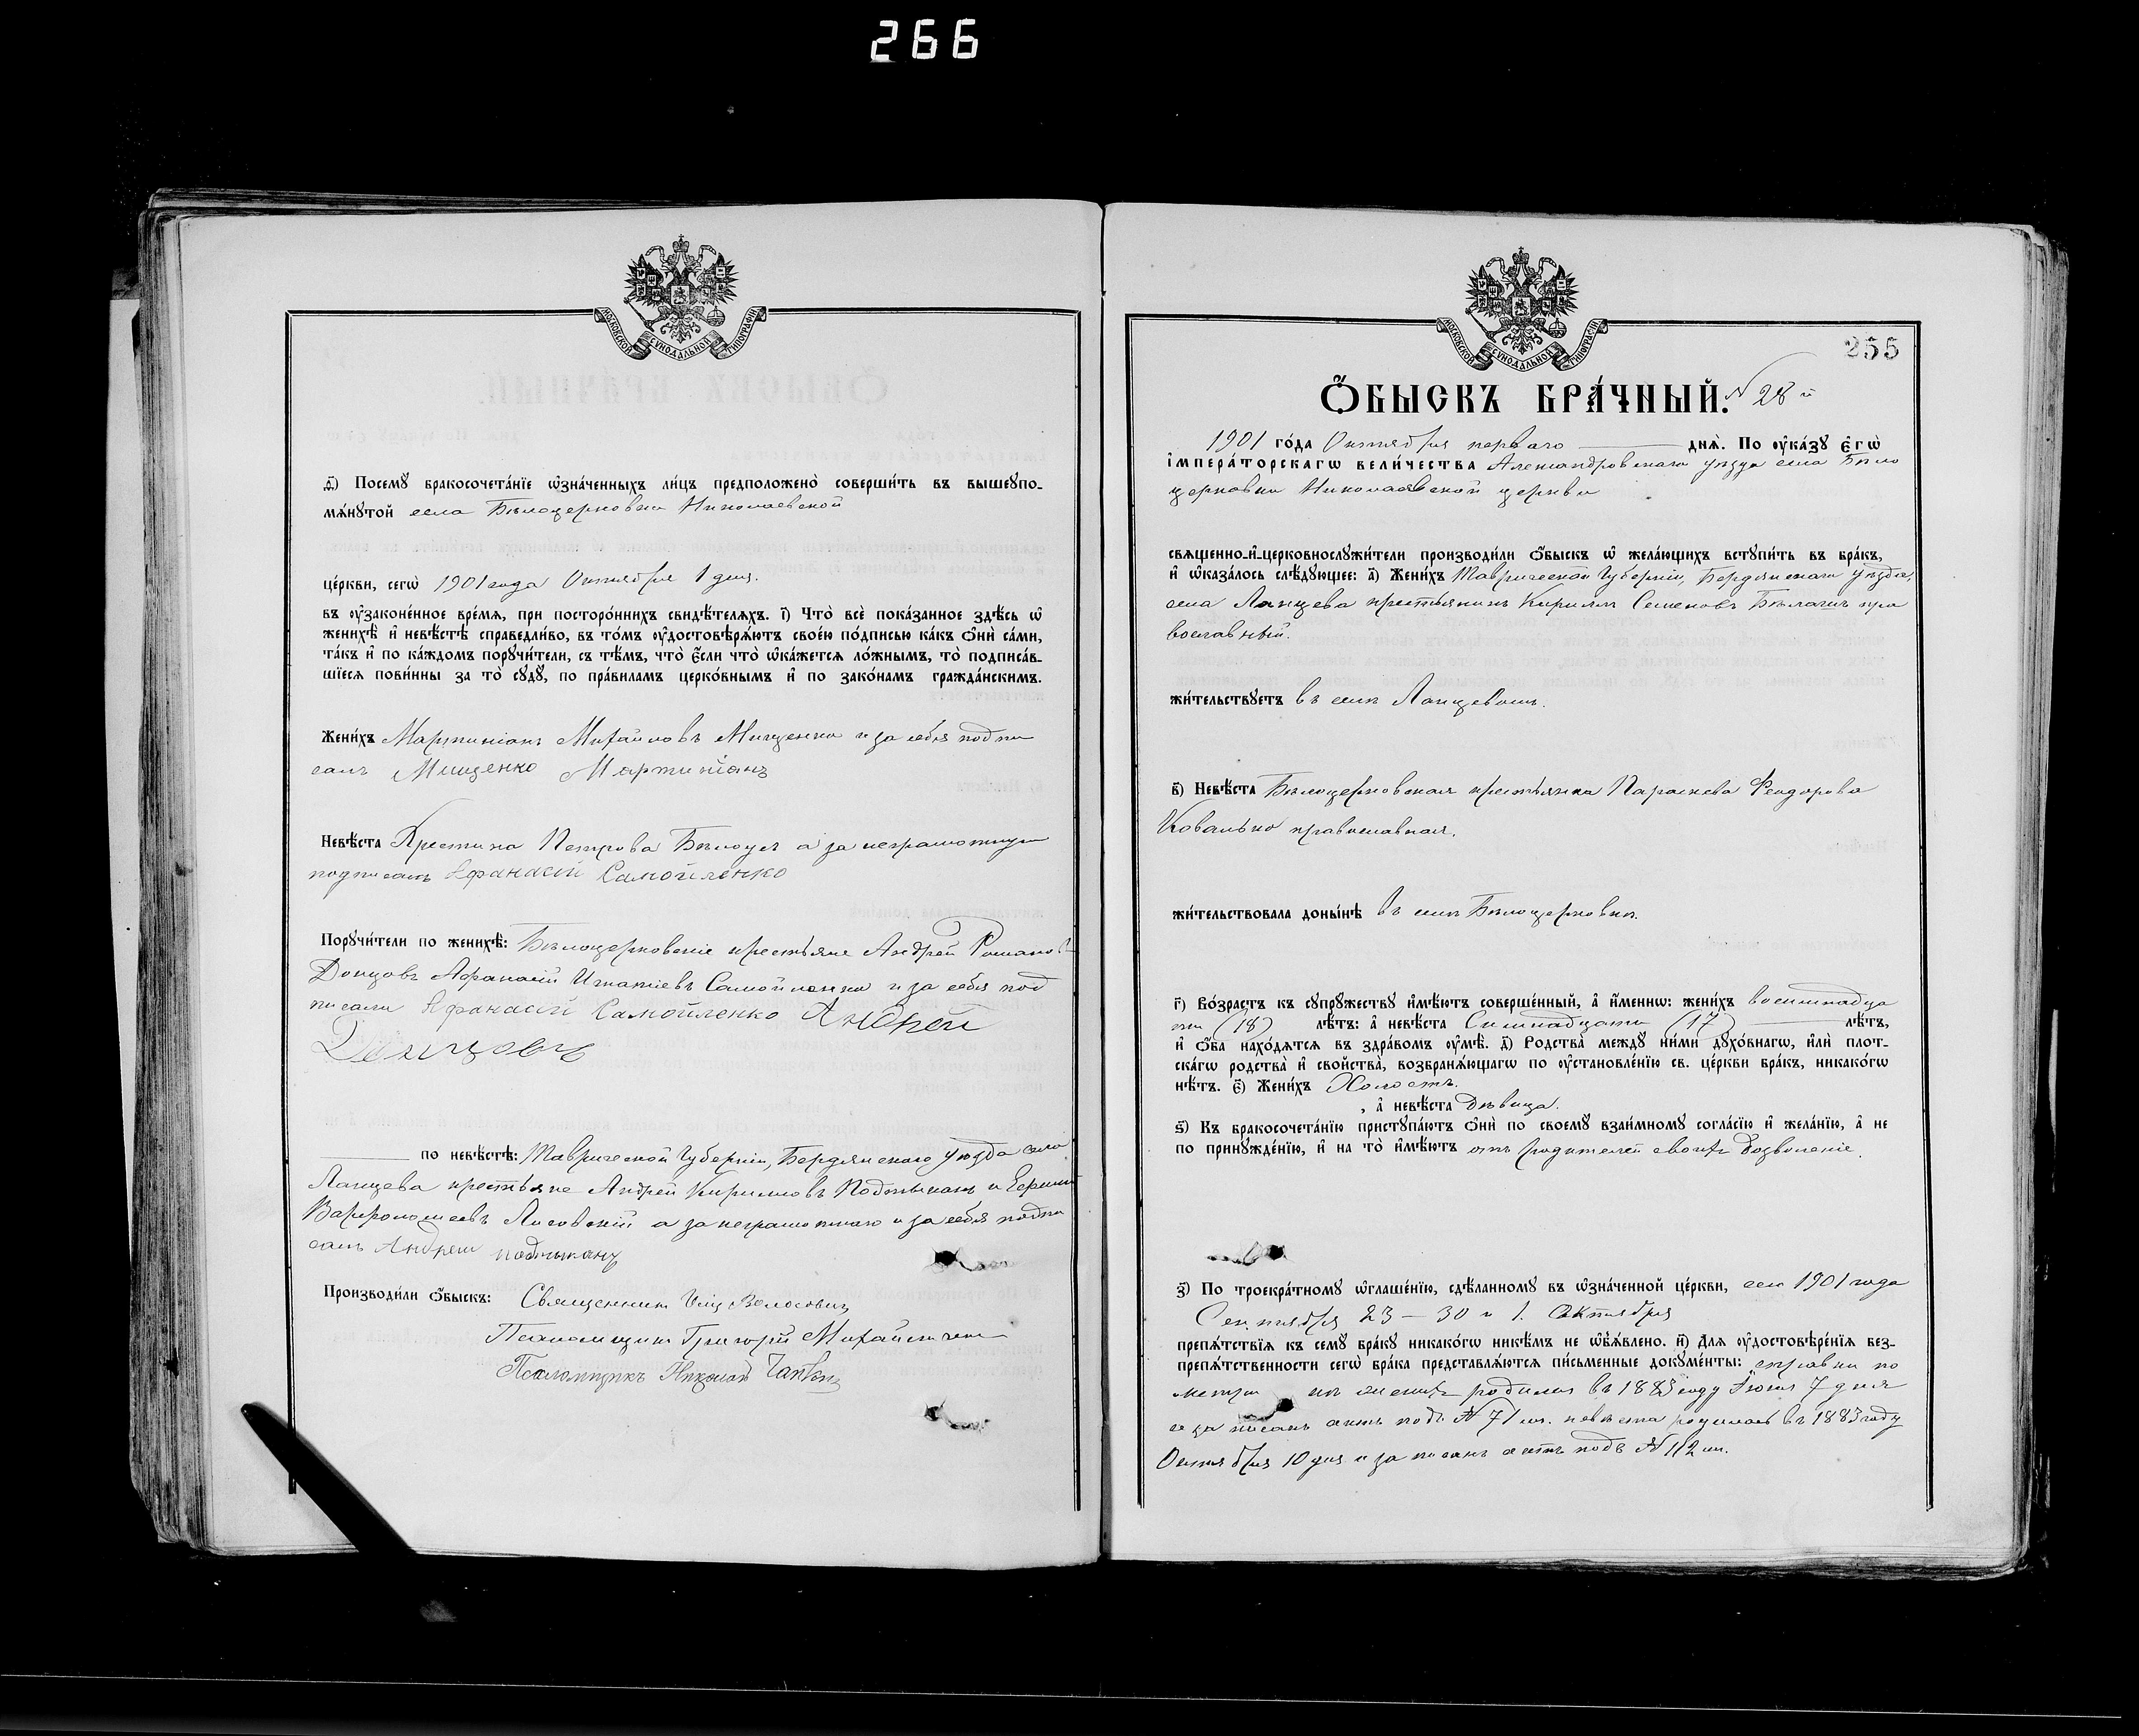 266
МОСКОВСКОЙ СѴНОДАЛЬНОЙ ТИПОГРАФІИ
Ѳ҃) Посемꙋ бракосочета́нїе ѡ҆зна́ченныхъ ли́цъ предположено̀ соверши́ть въ вышеꙋпо-
мѧ́нꙋтой села Бѣлоцерковки Николаевской
це́ркви, сегѡ̀ 1901 года Октября 1 дня.
въ ᲂу҆законе́нное вре́мѧ, при посторо́ннихъ свидѣ́телѧхъ. і҃) Что̀ всѐ пока́занное здѣ́сь ѡ҆
женихѣ̀ и҆ невѣ́стѣ справедли́во, въ то́мъ ᲂу҆достовѣрѧ́ютъ свое́ю по́дписью ка́къ ѻ҆нѝ са́ми,
та́къ и҆ по ка́ждомъ порꙋчи́тели, съ тѣ́мъ, что̀ є҆́сли что̀ ѡ҆ка́жетсѧ ло́жнымъ, то̀ подписа́в-
шїесѧ пови́нны за то̀ сꙋдꙋ̀, по пра́виламъ церко́внымъ и҆ по зако́намъ гражда́нскимъ.
Жени́хъ Мартиніанъ Михайловъ Мищенко и за себя подпи
салъ Мищенко Мартиніанъ
Невѣ́ста Христина Петрова Бѣлоусъ а за неграмотную
подписалъ Афанасій Самойленко
Порꙋчи́тели по женихѣ̀: Бѣлоцерковскіе крестьяне Андрей Романовъ
Донцовъ Афанасій Игнатіевъ Самойленко и за себя под
писали Афанасій Самойленко Андрей
Донцовъ
по невѣ́стѣ: Таврической Губерніи, Бердянскаго уѣзда села
Ланцева крестьяне Андрей Кирилловъ Подтыканъ и Ефимъ
Варфоломеевъ Лисовскій а за неграмотнаго и за себя подпи
салъ Андрей Подтыканъ
Производи́ли ѻ҆́быскъ: Священникъ
Псаломщикъ Григорій
Псаломщикъ Николай
МОСКОВСКОЙ СѴНОДАЛЬНОЙ ТИПОГРАФІИ
255
Ѻ҆́БЫСКЪ БРА́ЧНЫЙ. N 28й
1901 го́да Октября перваго днѧ̀. По ᲂу҆ка́зꙋ є҆гѡ̀
і҆мпера́торскагѡ вели́чества Александровскаго уѣзда села Бѣло
церковки Николаевской церкви
свѧщенно-и҆-церковнослꙋжи́тели производи́ли ѻ҆́быскъ ѡ҆ жела́ющихъ встꙋпи́ть въ бра́къ,
и҆ ѡ҆каза́лось слѣ́дꙋющее: а҃) Жени́хъ Таврической Губерніи, Бердянскаго уѣзда,
села Ланцева крестьянинъ Кириллъ Семеновъ пра
вославный.
жи́тельствꙋетъ въ селѣ Ланцевомъ.
в҃) Невѣ́ста Бѣлоцерковская крестьянка Параскева Феодорова
Ковалько православная.
жи́тельствовала доны́нѣ въ селѣ Бѣлоцерковкѣ.
г҃) Во́зрастъ къ сꙋпрꙋ́жествꙋ и҆мѣ́ютъ соверше́нный, а҆ и҆́меннѡ: жени́хъ восемнадца
ти (18) лѣ́тъ: а҆ невѣ́ста Семнадцати (17) лѣ́тъ,
и҆ ѻ҆́ба нахо́дѧтсѧ въ здра́вомъ ᲂу҆мѣ̀. д҃) Родства̀ междꙋ̀ ни́ми дꙋхо́внагѡ, и҆лѝ пло́т-
скагѡ родства̀ и҆ сво́йства̀, возбранѧ́ющагѡ по ᲂу҆становле́нїю св. це́ркви бра́къ, никако́гѡ
нѣ́тъ. є҃) Жени́хъ Холостъ.
, а҆ невѣ́ста Дѣвица.
ѕ҃) Къ бракосочета́нїю пристꙋпа́ютъ ѻ҆нѝ по своемꙋ̀ взаи́мномꙋ согла́сїю и҆ жела́нїю, а҆ не
по принꙋжде́нїю, и҆ на то̀ и҆мѣ́ютъ отъ родителей своихъ Дозволеніе.
з҃) По троекра́тномꙋ ѡ҆глаше́нїю, сдѣ́ланномꙋ въ ѡ҆зна́ченной це́ркви, сего 1901 года
Сентября 23 – 30 и 1. Октября
препѧ́тствїѧ къ семꙋ̀ бра́кꙋ никако́гѡ никѣ́мъ не ѡ҆б̾ѧ́влено. и҃) Длѧ ᲂу҆достовѣре́нїѧ без-
препѧ́тственности сегѡ̀ бра́ка представлѧ́ютсѧ пи́сьменные докꙋме́нты: справки по
женихъ родился въ 1883 году Іюня 7 дня
записанъ актъ подъ N 71 м. невѣста родилась въ 1883 году
Октября 10 дня и записанъ актъ подъ N 112 м.